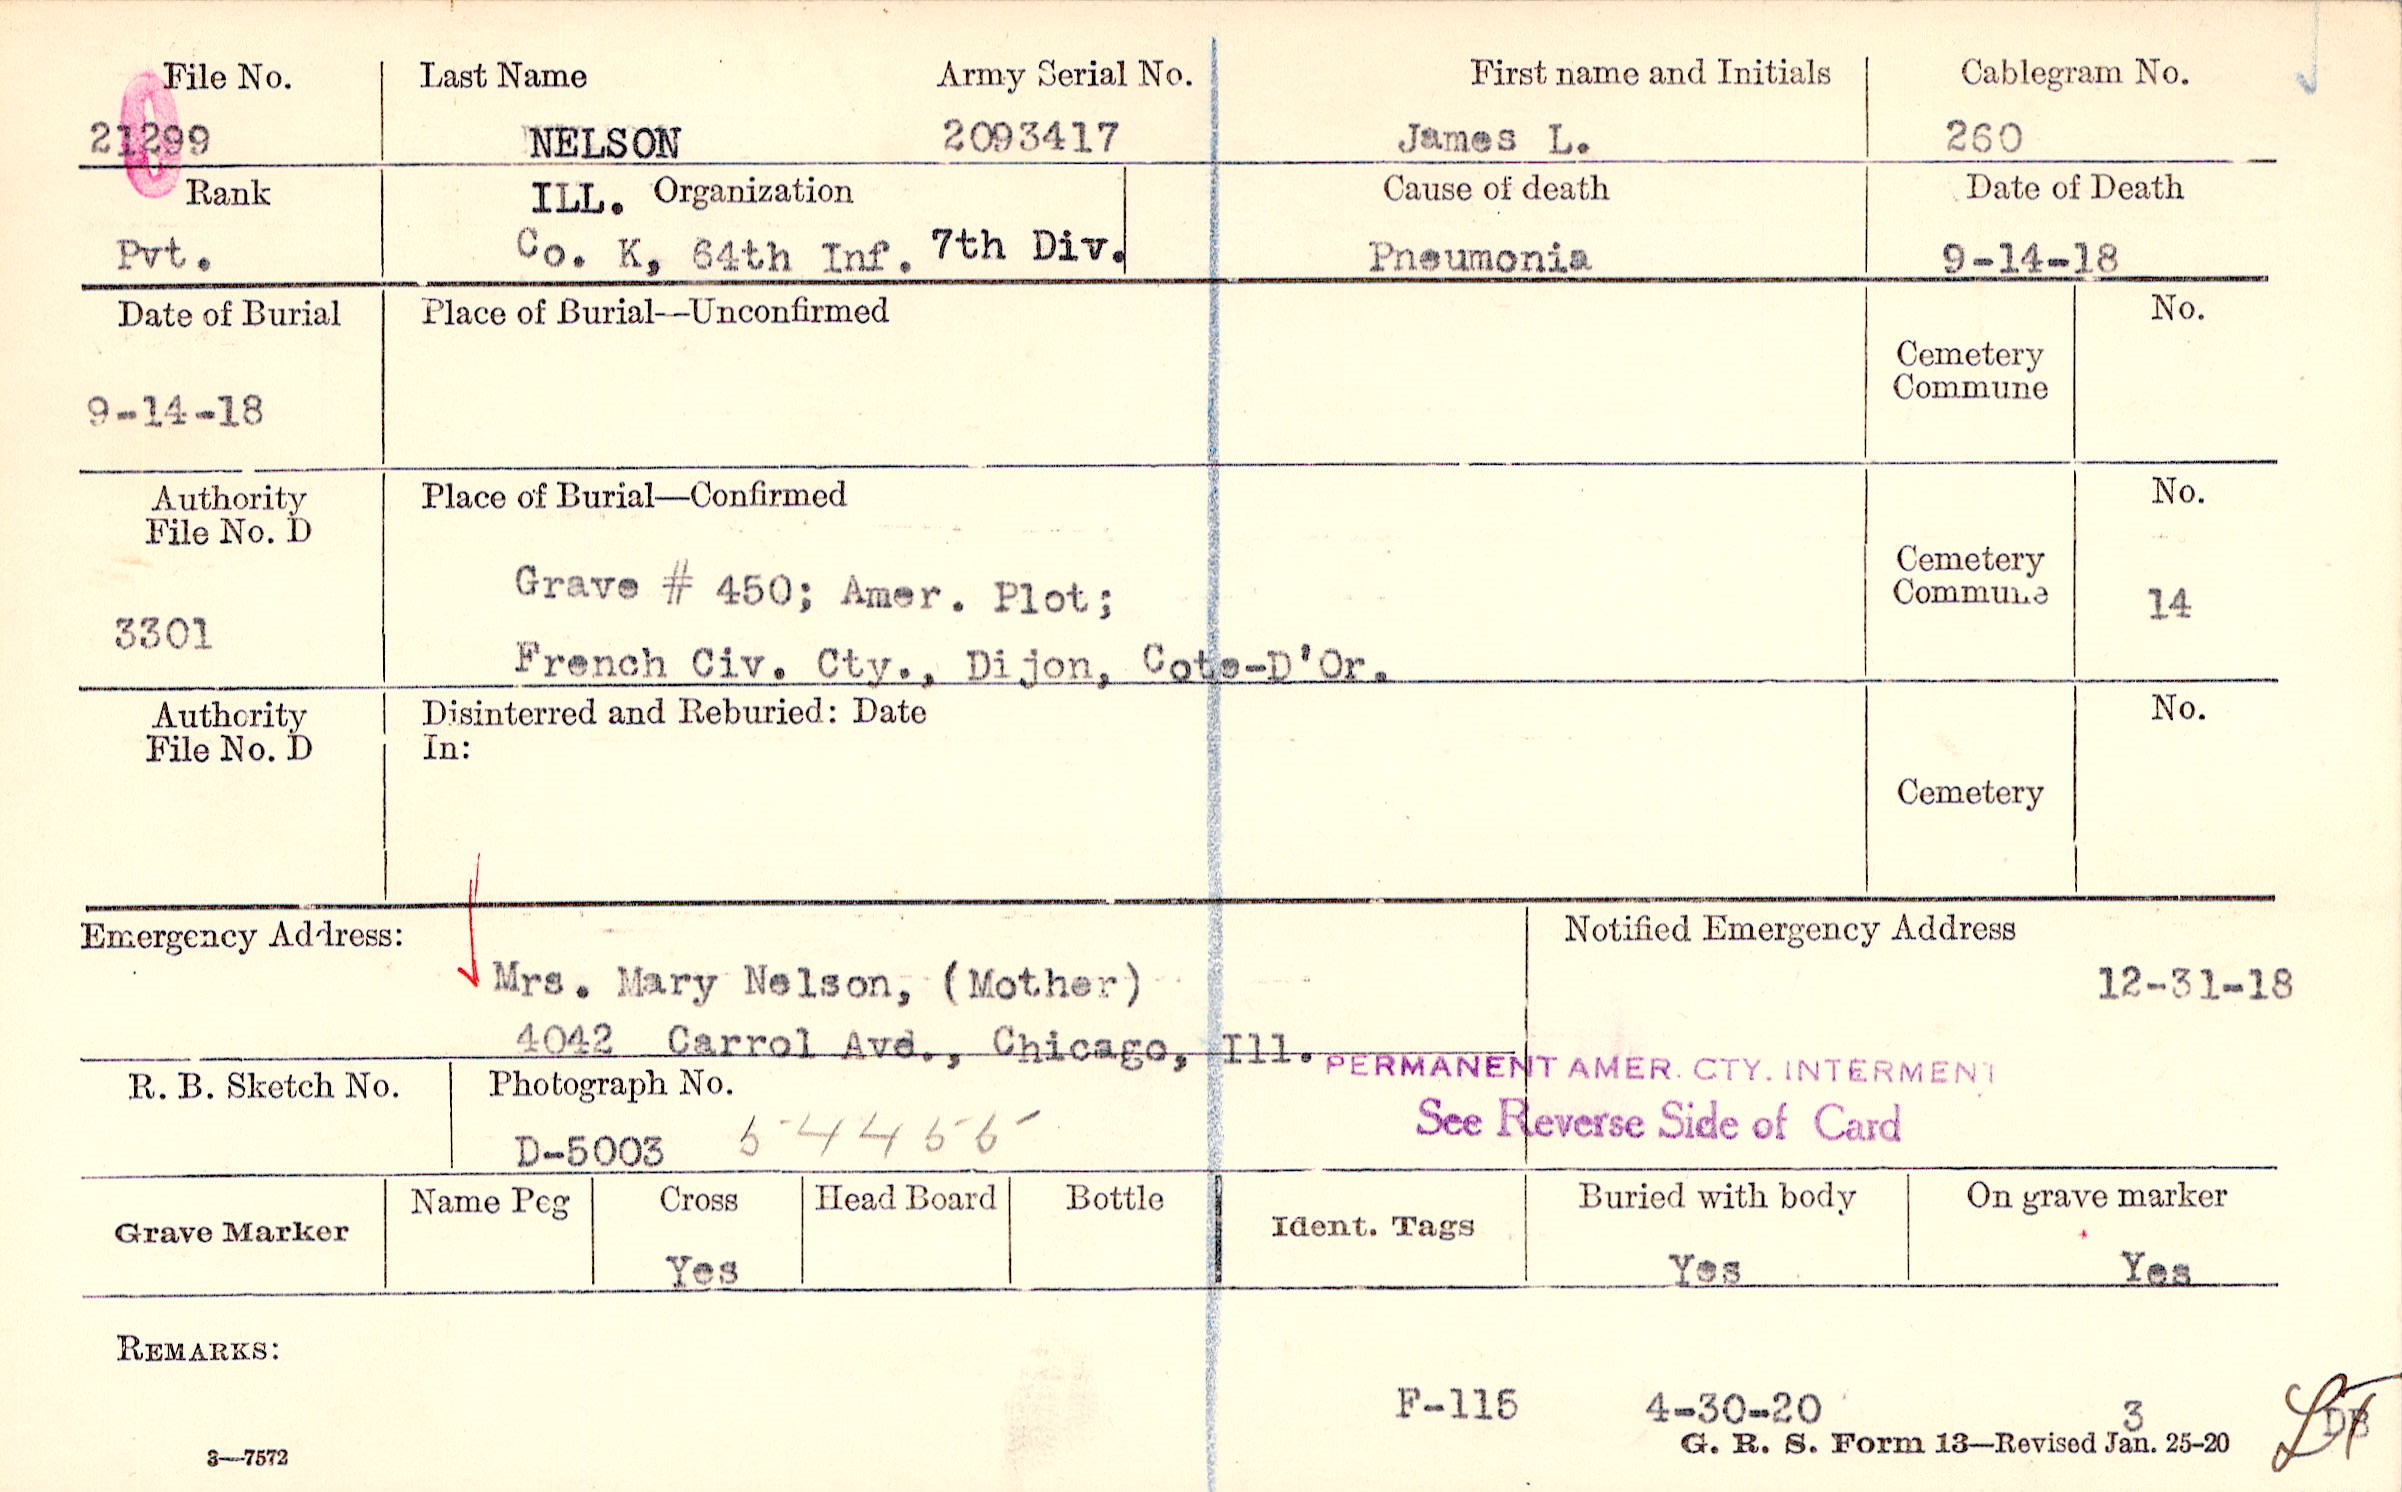 File No. Last Name Army Serial No. First name and Initials Cablegram No.
21299 NELSON 2093417 James L. 260
Rank ILL. Organization Cause of death Date of Death
Pvt. Co. K, 64th Inf. 7th Div. Pneumonia 9-14-18
Date of Burial Place of Burial—Unconfirmed No.
Cemetery
Commune
9-14-18
Authority Place of Burial—Confirmed No.
File No. D
Cemetery
Commune
Grave # 450; Amer. Plot; 14
3301
French Civ. Cty., Dijon, Cote-D'Or.
Authority Disinterred and Reburied: Date No.
File No. D In:
Cemetery
Emergency Address: Notified Emergency Address
Mrs. Mary Nelson, (Mother) 12-31-18
4042 Carrol Ave., Chicago, Ill.
PERMANENT AMER. CTY. INTERMENT
R. B. Sketch No. Photograph No.
See Reverse Side of Card
D-5003
Grave Marker Name Peg Cross Head Board Bottle Ident. Tags Buried with body On grave marker
Yes Yes Yes
REMARKS:
F-115 4-30-20 3 DB
3—7572 G. R. S. Form 13—Revised Jan. 25-20